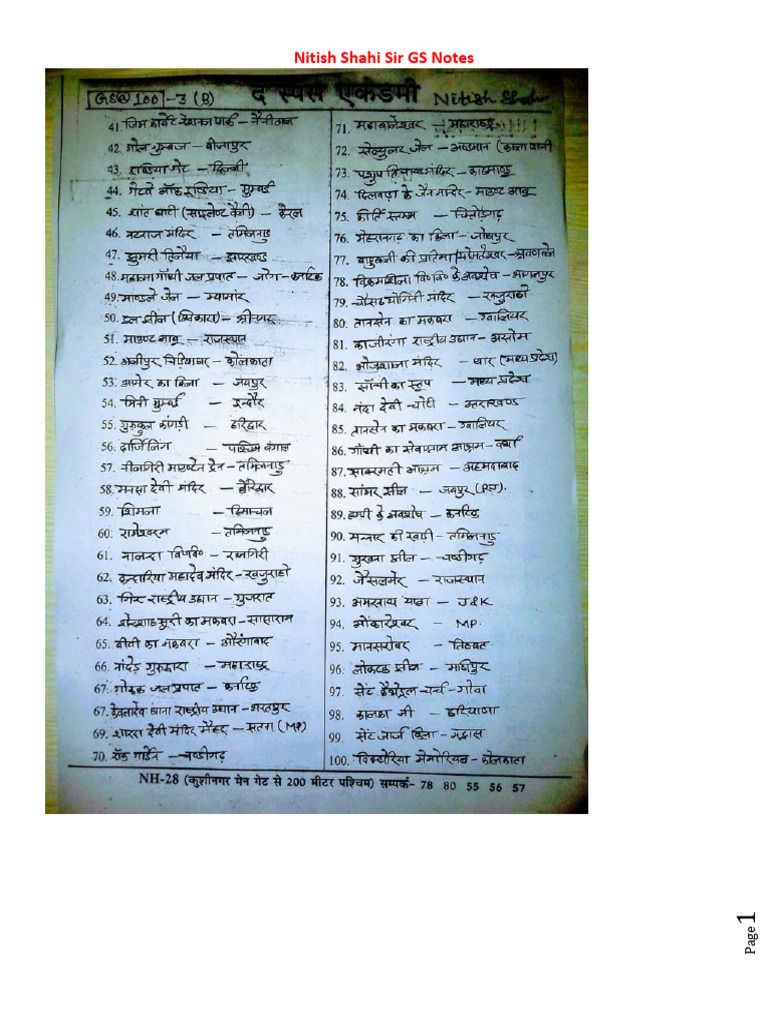 Nitish Shahi Sir GS Notes
GS@100 -3 (B) द स्पेस एकेडमी Nitish Shahi
41. जिम कार्बेट नेशनल पार्क - नैनीताल
42. गोल गुम्बज - बीजापुर
43. इण्डिया गेट - दिल्ली
44. गेटवे ऑफ इण्डिया - मुम्बई
45. शांत घाटी (साइलेण्ट वैली) - केरल
46. नटराज मंदिर - तमिलनाडु
47. झुमरी तिलैया - झारखण्ड
48. महात्मा गाँधी जल प्रपात - जोग - कर्नाटक
49. माण्डले जेल - म्यांमार
50. डल झील (शिकारा) - श्रीनगर
51. माउण्ट आबू - राजस्थान
52. अलीपुर चिड़ियाघर - कोलकाता
53. आमेर का किला - जयपुर
54. मिनी मुम्बई - इन्दौर
55. गुरुकुल कांगड़ी - हरिद्वार
56. दार्जिलिंग - पश्चिम बंगाल
57. नीलगिरी माउण्टेन ट्रेन - तमिलनाडु
58. मनसा देवी मंदिर - हरिद्वार
59. शिमला - हिमाचल
60. रामेश्वरम - तमिलनाडु
61. नालन्दा वि०वि० - राजगिरी
62. कन्दारिया महादेव मंदिर - खजुराहो
63. गिर राष्ट्रीय उद्यान - गुजरात
64. शेरशाह सूरी का मकबरा - सासाराम
65. बीबी का मकबरा - औरंगाबाद
66. नांदेड़ गुरुद्वारा - महाराष्ट्र
67. गोकक जल प्रपात - कर्नाटक
67. केवलादेव घाना राष्ट्रीय उद्यान - भरतपुर
69. शारदा देवी मंदिर मैहर - सतना (MP)
70. रॉक गार्डेन - चण्डीगढ़
71. महाबालेश्वर - महाराष्ट्र
72. सेल्युलर जेल - अण्डमान (काला पानी
73. पशुपतिनाथ मंदिर - काठमाण्डू
74. दिलवाड़ा के जैन मंदिर - माउण्ट आबू
75. कीर्ति स्तम्भ - चित्तौड़गढ़
76. मेहरानगढ़ का किला - जोधपुर
77. बाहुबली की प्रतिमा गोमतेश्वर - श्रवणबेल
78. विक्रमशिला वि०वि० के अवशेष - भागलपुर
79. चौसठ योगिनी मंदिर - खजुराहो
80. तानसेन का मकबरा - ग्वालियर
81. काजीरंगा राष्ट्रीय उद्यान - असोम
82. भोजशाला मंदिर - धार (मध्य प्रदेश)
83. साँची का स्तूप - मध्य प्रदेश
84. नंदा देवी चोटी - उत्तराखण्ड
85. तानसेन का मकबरा - ग्वालियर
86. गाँधी का सेवाग्राम आश्रम - वर्धा
87. साबरमती आश्रम - अहमदाबाद
88. सांभर झील - जयपुर
89. हम्पी के अवशेष - कर्नाटक
90. मन्नार की खाड़ी - तमिलनाडु
91. सुखना झील - चण्डीगढ़
92. जैसलमेर - राजस्थान
93. अमरनाथ यात्रा - J&K
94. ओंकारेश्वर - MP.
95. मानसरोवर - तिब्बत
96. लोकटक झील - मणिपुर
97. सेंट कैथेड्रल चर्च - गोवा
98. कालका जी - हरियाणा
99. सेंट जार्ज किला - मद्रास
100. विक्टोरिया मेमोरियल - कोलकाता
NH-28 (कुशीनगर मेन गेट से 200 मीटर पश्चिम) सम्पर्क- 78 80 55 56 57
Page 1